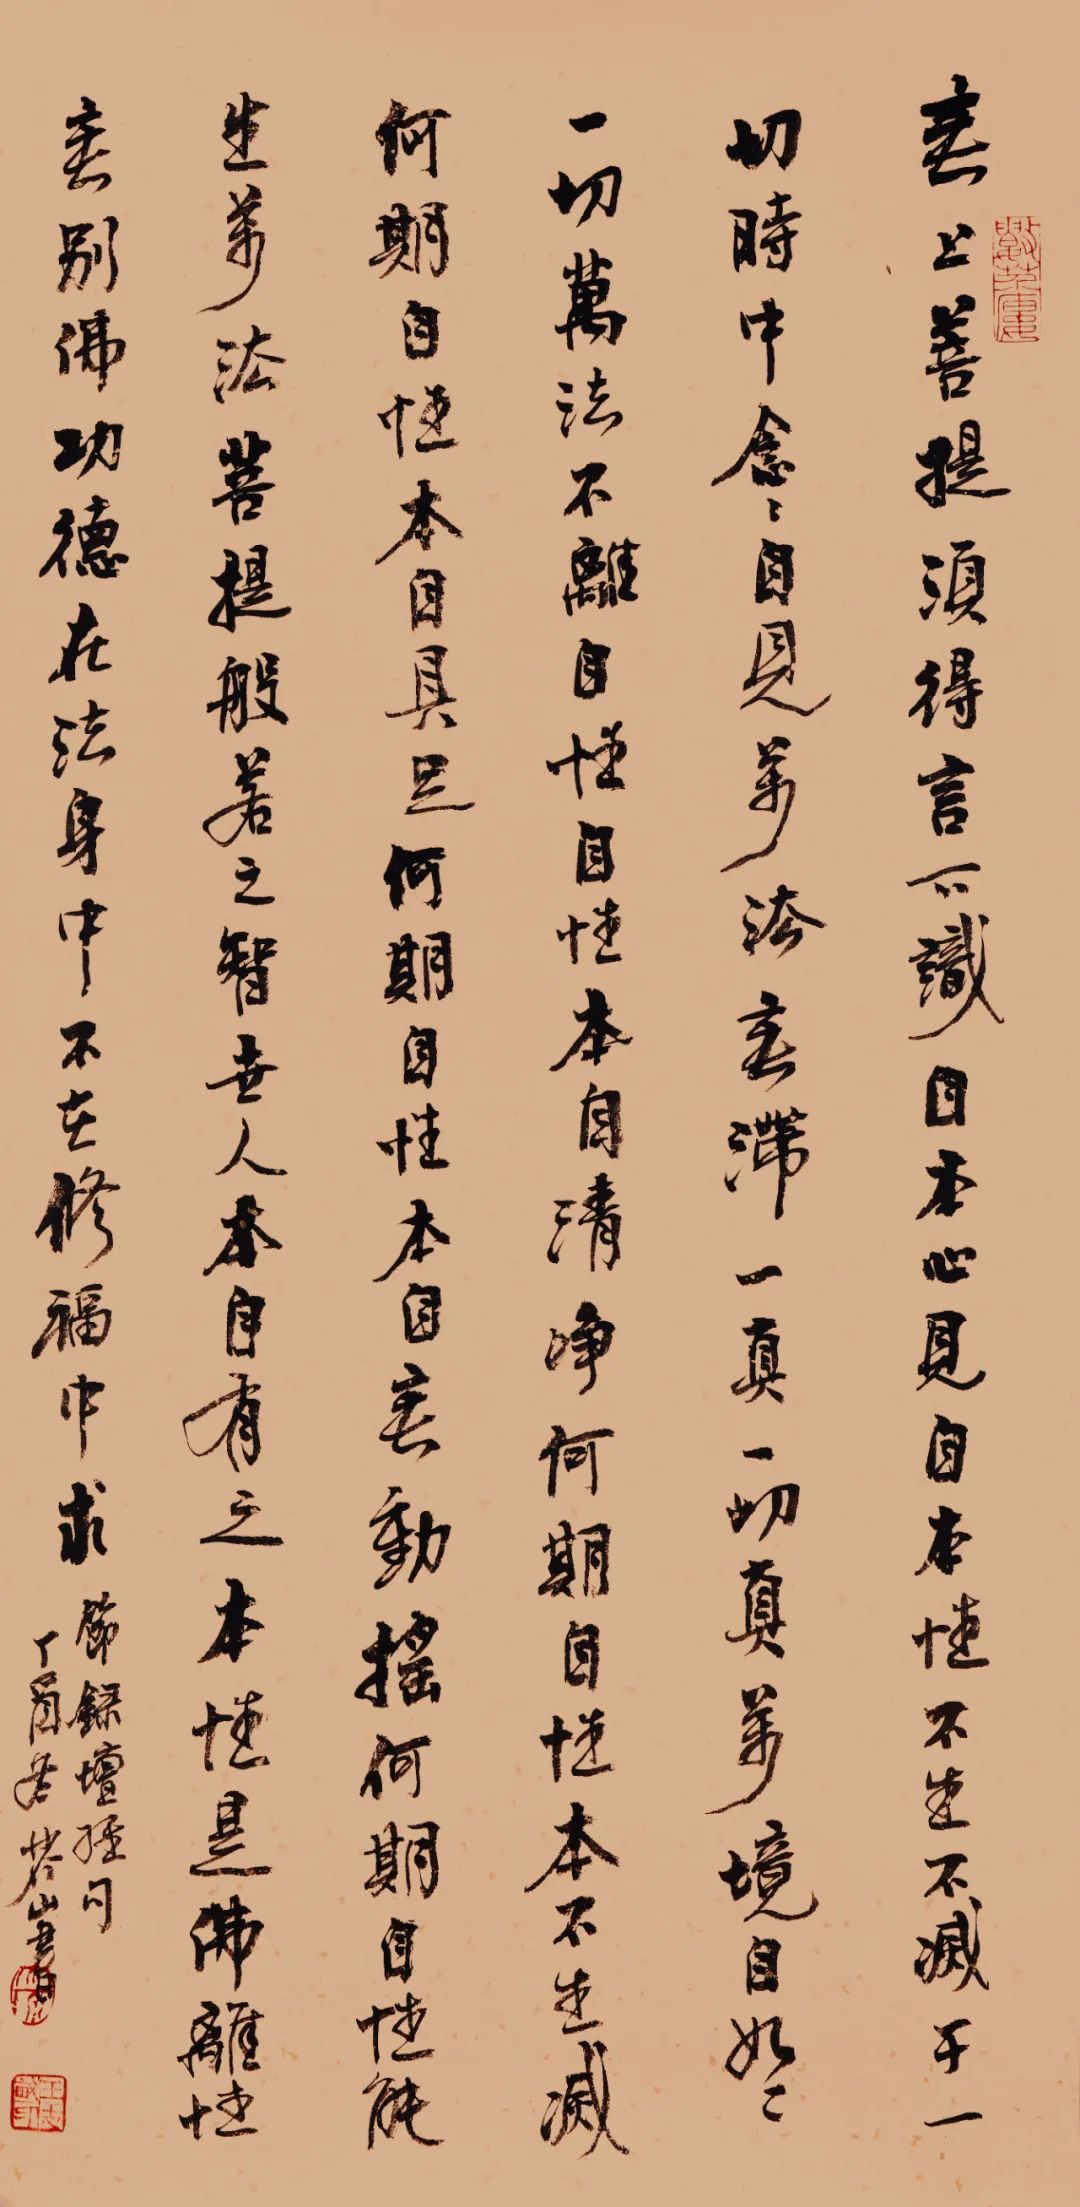 無上菩提須得言下識自本心見自本性不生不滅于一
切時中念々自見萬法無滯一真一切真萬境自如々
一切萬法不離自性自性本自清净何期自性本不生滅
何期自性本自具足何期自性本自無動搖何期自性能
生萬法菩提般若之智世人本自有之本性是佛離性
無別佛功德在法身中不在修福中求
節錄壇經句
丁酉冬山書